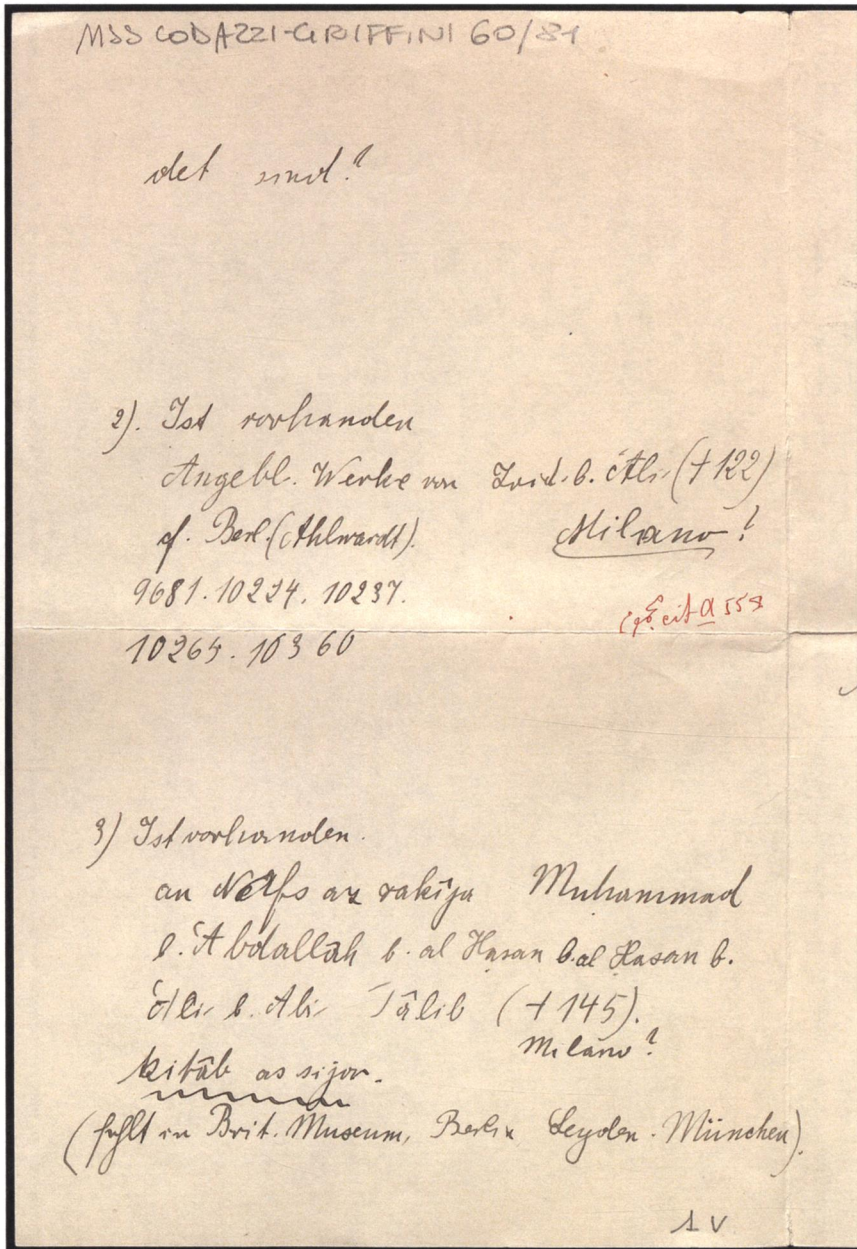 MSS CODAZZI-GRIFFINI 60/81
det sind?
2). Ist vorhanden
Angebl. Werke von Zaid. b. ʿAli (†122)
cf. Berl. (Ahlwardt). Milano!
9681. 10224. 10237.
cit α 558
10265. 10360
3) Ist vorhanden.
an Nafs az zakīja Muhammad
b. ʿAbdallāh b. al Hasan b. al Hasan b.
ʿAli b. Abi Tâlib (†145).
Milano?
kitāb as sijar.
(fehlt in Brit. Museum, Berlin Leyden. München).
1 V